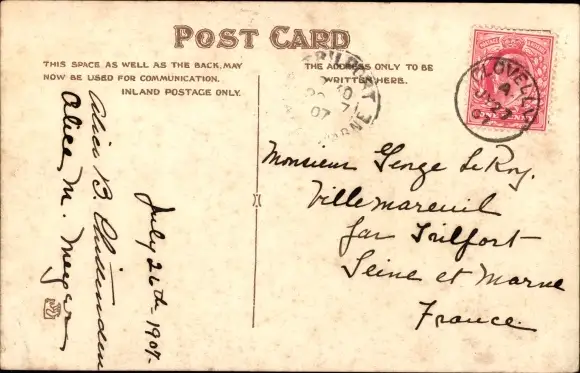 POST CARD
THIS SPACE AS WELL AS THE BACK, MAY
NOW BE USED FOR COMMUNICATION.
INLAND POSTAGE ONLY.
THE ADDRESS ONLY TO BE
WRITTEN HERE.
CLOVELLY
A
JY 27
07
07
MARNE
Monsieur George LeRoy.
Villemareuil
par Trilfort
Seine et Marne
France.
July 26th - 1907-
Alice B. Chittenden
Alice M.